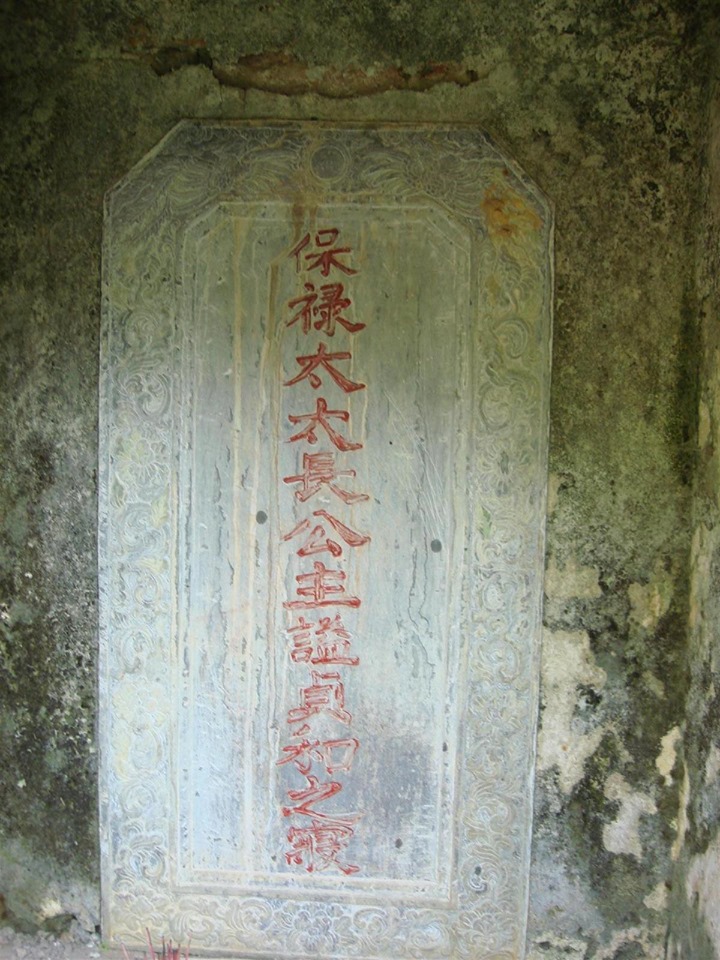 保禄太太長公主謚貞和之寢